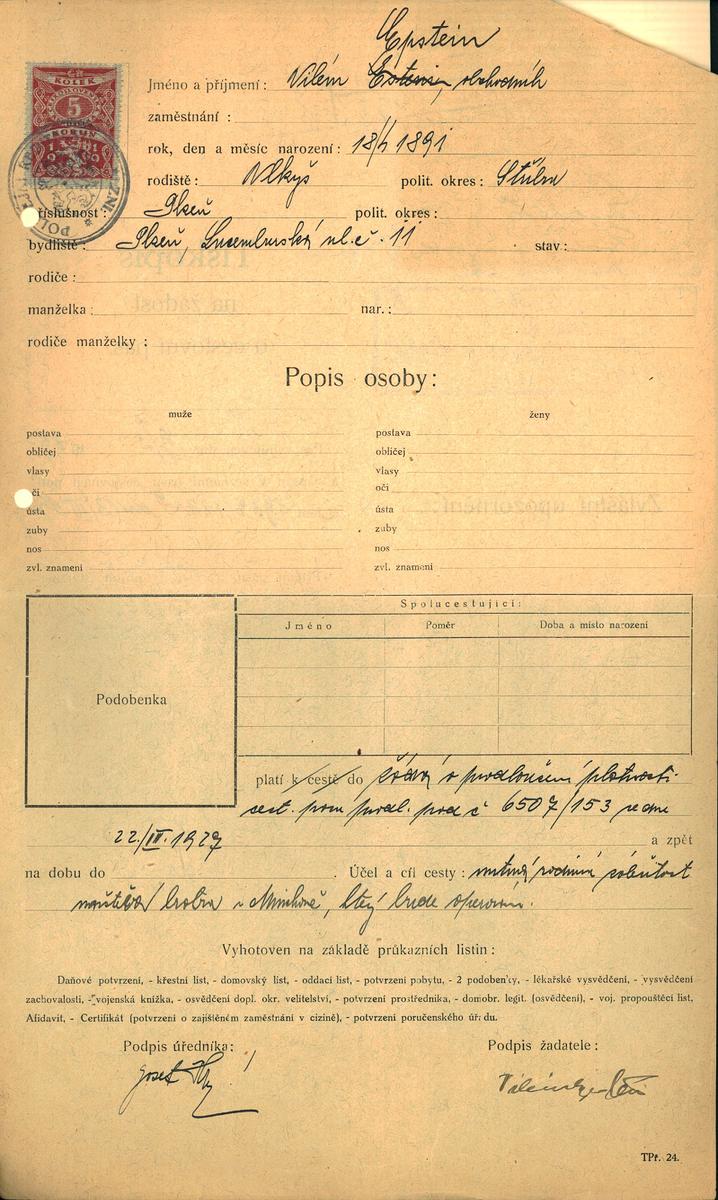 Epstein
KOLEK
5
KORUN
1919
Jméno a příjmení: Vilém obchodník
zaměstnání:
rok, den a měsíc narození: 18/1 1891
rodiště: Vlkyš polit. okres: Stříbro
říslušnost: Plzeň polit. okres:
bydliště: Plzeň, Lucemburská ul. č. 11 stav:
rodiče:
manželka: nar.:
rodiče manželky:
Popis osoby:
muže ženy
postava postava
obličej obličej
vlasy vlasy
oči oči
ústa ústa
zuby zuby
nos nos
zvl. znamení zvl. znamení
Spolucestující:
Jméno Poměr Doba a místo narození
Podobenka
platí k cestě do žádá o prodloužení platnosti
cest. pasu vyd. pod č 6507/153 ze dne
22./IV. 1927 a zpět
na dobu do . Účel a cíl cesty: nutná rodinná záležitost
návštěva bratra v Mnichově, který bude operován.
Vyhotoven na základě průkazních listin:
Daňové potvrzení, - křestní list, - domovský list, - oddací list, - potvrzení pobytu, - 2 podobenky, - lékařské vysvědčení, - vysvědčení
zachovalosti, - vojenská knížka, - osvědčení dopl. okr. velitelství, - potvrzení prostředníka, - domobr. legit. (osvědčení), - voj. propouštěcí list,
Afidavit, - Certifikát (potvrzení o zajištěném zaměstnání v cizině), - potvrzení poručenského úřadu.
Podpis úředníka: Podpis žadatele:
Josef
Vilém Epstein
TPř. 24.